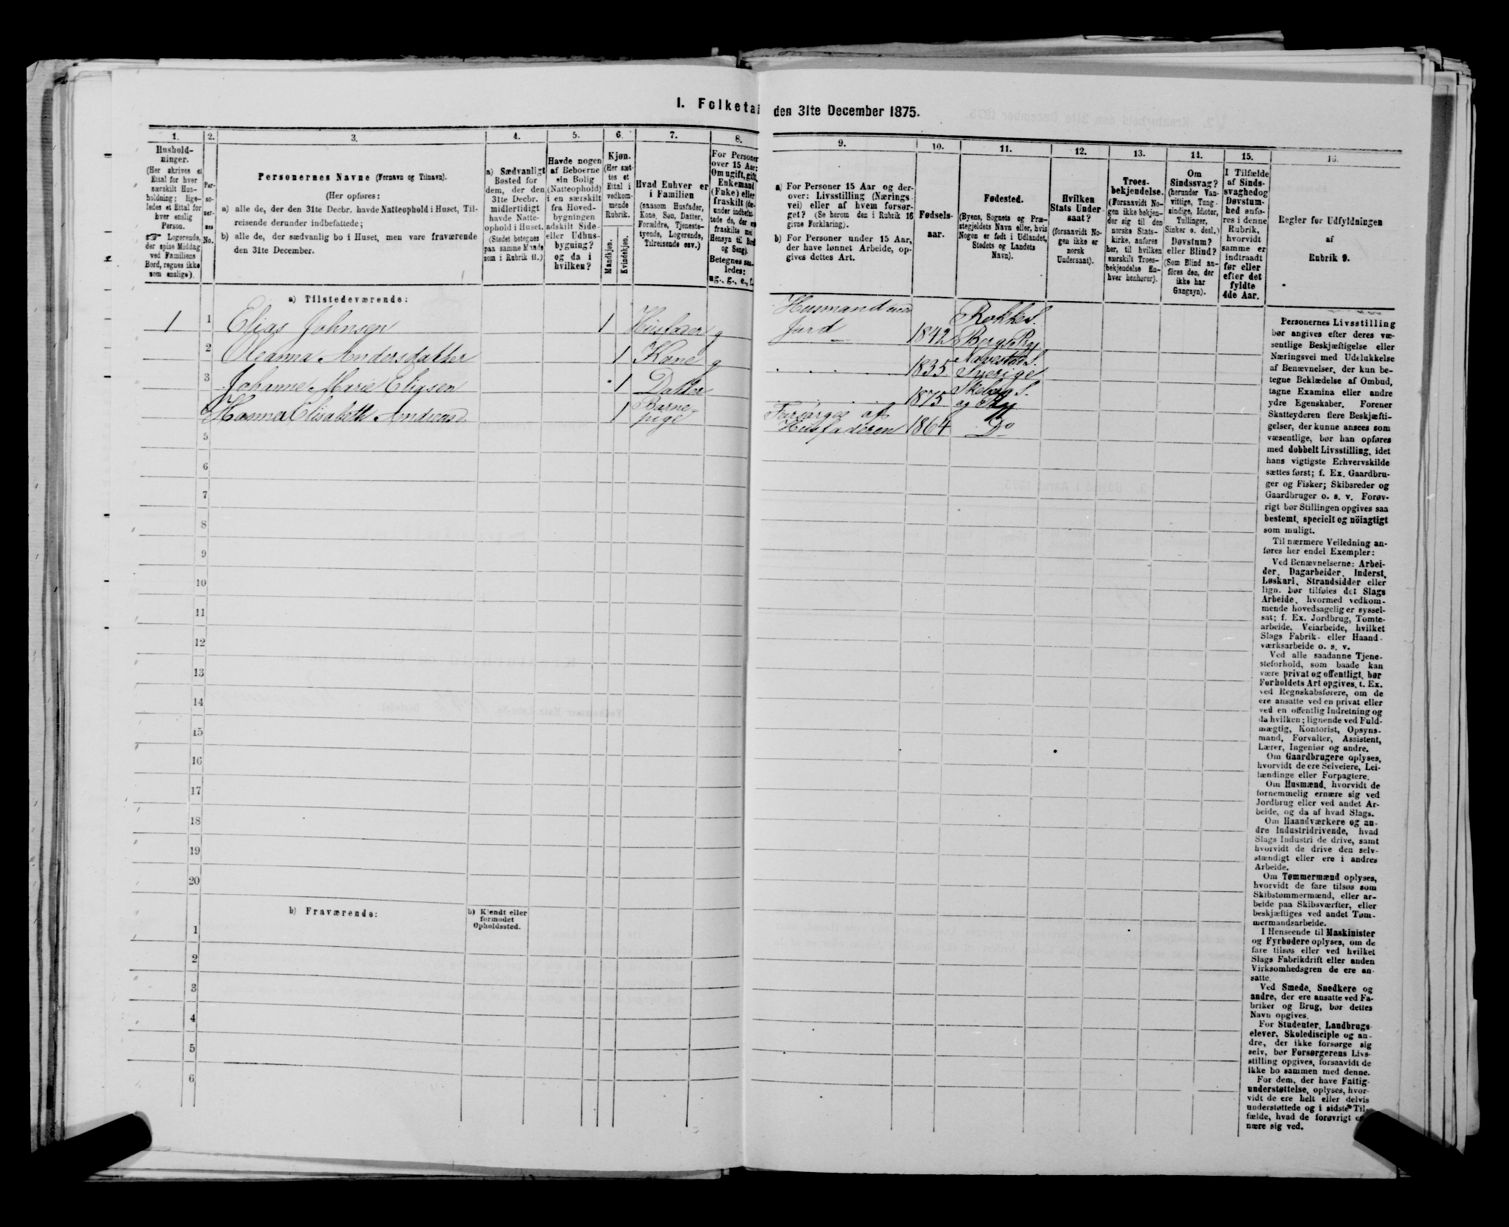 I. Folketal den 31te December 1875.
1.
Hushold-
ninger.
(Her skrives et
Ettal for hver
særskilt Hus-
holdning; lige-
ledes et Ettal for
hver enslig
Person.
☞ Logerende,
der spise Middag
ved Familiens
Bord, regnes ikke
som enslige).
2.
Per-
soner-
nes
No.
3.
Personernes Navne (Fornavn og Tilnavn).
(Her opføres:
a) alle de, der den 31te Decbr. havde Natteophold i Huset, Til-
reisende derunder indbefattede;
b) alle de, der sædvanlig bo i Huset, men vare fraværende
den 31te December.
4.
a) Sædvanligt
Bosted for
dem, der den
31te Decbr.
midlertidigt
havde Natte-
ophold i Huset.
(Stedet betegnes
paa samme Maade
som i Rubrik 11.)
5.
Havde nogen
af Beboerne
sin Bolig
(Natteophold)
i en særskilt
fra Hoved-
bygningen
adskilt Side-
eller Udhus-
bygning?
og da i
hvilken?
6.
Kjøn.
(Her sæt-
tes et
Ettal i
vedkom-
mende
Rubrik.
Mandkjøn.
Kvindekjøn.
7.
Hvad Enhver er
i Familien
(saasom Husfader,
Kone, Søn, Datter,
Forældre, Tjeneste-
tyende, Logerende,
Tilreisende osv.)
8.
For Personer
over 15 Aar:
Om ugift, gift,
Enkemand
(Enke) eller
fraskilt
9.
a) For Personer 15 Aar og der-
over: Livsstilling (Nærings-
vei) eller af hvem forsør-
get? (Se herom den i Rubrik 16
givne Forklaring).
b) For Personer under 15 Aar,
der have lønnet Arbeide, op-
gives dettes Art.
10.
Fødsels-
aar.
11.
Fødested.
(Byens, Sognets og Præ-
stegjeldets Navn eller, hvis
Nogen er født i Udlandet,
Stedets og Landets
Navn).
12.
Hvilken
Stats Under-
saat?
(forsaavidt No-
gen ikke er
norsk
Undersaat).
13.
Troes-
bekjendelse.
(Forsaavidt No-
gen ikke bekjen-
der sig til den
norske Stats-
kirke, anføres
her, til hvilken
særskilt Troes-
bekjendelse En-
hver henhører).
14.
Om
Sindssvag?
(herunder Van-
vittige, Tung-
sindige, Idioter,
Tullinger,
Sinker o. desl.)
Døvstum?
eller Blind?
(Som Blind an-
føres den, der
ikke har
Gangsyn).
15.
I Tilfælde
af Sinds-
svaghed og
Døvstum-
hed anfø-
res i denne
Rubrik,
hvorvidt
samme er
indtraadt
før eller
efter det
fyldte
4de Aar.
16.
Regler for Udfyldningen
af
Rubrik 9.
a) Tilstedeværende:
1 1 Elias Johnsen 1 Husfader g Husmand med
Jord 1842 Rokke S.
Berg Pg.
2 Oleanna Andersdatter 1 Kone g 1835 Sverige
3 Johanne Marie Eliasen 1 Datter 1875 Skeberg S.
og Pg
Hanna Elisabeth 1 Barne-
pige Forsørges af
Husfaderen 1864 Do
5
6
7
8
9
10
11
12
13
14
15
16
17
18
19
20
b) Fraværende:
b) Kjendt eller
formodet
Opholdssted.
1
2
3
4
5
6
Personernes Livsstilling
bør angives efter deres væ-
sentlige Beskjæftigelse eller
Næringsvei med Udelukkelse
af Benævnelser, der kun be-
tegne Beklædelse af Ombud,
tagne Examina eller andre
ydre Egenskaber. Forener
Skatteyderen flere Beskjæfti-
gelser, der kunne ansees som
væsentlige, bør han opføres
med dobbelt Livsstilling, idet
hans vigtigste Erhvervskilde
sættes først; f. Ex. Gaardbru-
ger og Fisker; Skibsreder og
Gaardbruger o. s. v. Forøv-
rigt bør Stillingen opgives saa
bestemt, specielt og nöiagtigt
som muligt.
Til nærmere Veiledning an-
føres her endel Exempler:
Ved Benævnelserne: Arbei-
der, Dagarbeider, Inderst,
Løskarl, Strandsidder eller
lign. bør tilføies det Slags
Arbeide, hvormed vedkom-
mende hovedsagelig er syssel-
sat; f. Ex. Jordbrug, Tomte-
arbeide, Veiarbeide, hvilket
Slags Fabrik- eller Haand-
værksarbeide o. s. v.
Ved alle saadanne Tjene-
steforhold, som baade kan
være privat og offentligt, bør
Forholdets Art opgives, t. Ex.
ved Regnskabsførere, om de
ere ansatte ved en privat eller
ved en offentlig Indretning og
da hvilken; lignende ved Fuld-
mægtig, Kontorist, Opsyns-
mand, Forvalter, Assistent,
Lærer, Ingeniør og andre.
Om Gaardbrugere oplyses,
hvorvidt de ere Selveiere, Lei-
lændinge eller Forpagtere.
Om Husmænd, hvorvidt de
fornemmelig ernære sig ved
Jordbrug eller ved andet Ar-
beide, og da af hvad Slags.
Om Haandværkere og an-
dre Industridrivende, hvad
Slags Industri de drive, samt
hvorvidt de drive den selv-
stændigt eller ere i andres
Arbeide.
Om Tømmermænd oplyses,
hvorvidt de fare tilsøs som
Skibstømmermænd, eller ar-
beide paa Skibsværfter, eller
beskjæftiges ved andet Tøm-
mermandsarbeide.
I Henseende til Maskinister
og Fyrbødere oplyses, om de
fare tilsøs eller ved hvilket
Slags Fabrikdrift eller anden
Virksomhedsgren de ere an-
satte.
Ved Smede, Snedkere og
andre, der ere ansatte ved Fa-
briker og Brug, bør dettes
Navn opgives.
For Studenter, Landbrugs-
elever, Skoledisciple og an-
dre, der ikke forsørge sig
selv, bør Forsørgerens Livs-
stilling opgives, forsaavidt de
ikke bo sammen med denne.
For dem, der have Fattig-
understøttelse, oplyses, hvor-
vidt de ere helt eller delvis
understøttede og i sidste Til-
fælde, hvad de forøvrigt er-
nære sig ved.